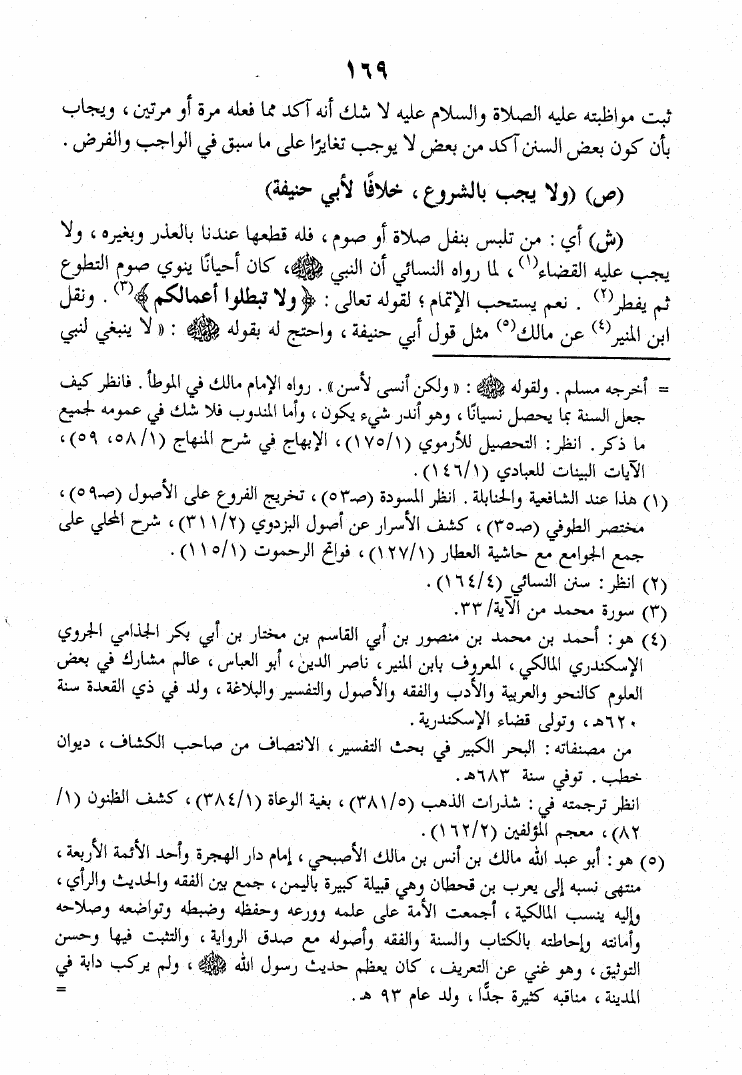 ١٦٩
ثبت مواظبته عليه الصلاة والسلام عليه لا شك أنه آكد مما فعله مرة أو مرتين ، ويجاب
بأن كون بعض السنن آكد من بعض لا يوجب تغايرًا على ما سبق في الواجب والفرض .
(ص) (ولا يجب بالشروع ، خلافًا لأبي حنيفة)
(ش) أي : من تلبس بنفل صلاة أو صوم ، فله قطعها عندنا بالعذر وبغيره ، ولا
يجب عليه القضاء(١) ، لما رواه النسائي أن النبي ﷺ، كان أحيانًا ينوي صوم التطوع
ثم يفطر(٢) . نعم يستحب الإتمام ؛ لقوله تعالى : ﴿ ولا تبطلوا أعمالكم ﴾(٣) . ونقل
ابن المنير(٤) عن مالك(٥) مثل قول أبي حنيفة ، واحتج له بقوله ﷺ : « لا ينبغي لنبي
= أخرجه مسلم . ولقوله ﷺ : « ولكن أنسى لأسن» . رواه الإمام مالك في الموطأ . فانظر كيف
جعل السنة بما يحصل نسيانًا ، وهو أندر شيء يكون ، وأما المندوب فلا شك في عمومه لجميع
ما ذكر . انظر : التحصيل للأرموي (١/١٧٥) ، الإبهاج في شرح المنهاج (١/٥٨، ٥٩) ،
الآيات البينات للعبادي (١/١٤٦) .
(١) هذا عند الشافعية والحنابلة . انظر المسودة (صـ٥٣) ، تخريج الفروع على الأصول (صـ٥٩) ،
مختصر الطوفي (صـ٣٥) ، كشف الأسرار عن أصول البزدوي (٢/٣١١) ، شرح المحلي على
جمع الجوامع مع حاشية العطار (١/١٢٧) ، فواتح الرحموت (١/١١٥) .
(٢) انظر : سنن النسائي (٤/١٦٤) .
(٣) سورة محمد من الآية/ ٣٣.
(٤) هو : أحمد بن محمد بن منصور بن أبي القاسم بن مختار بن أبي بكر الجذامي الجروي
الإسكندري المالكي ، المعروف بابن المنير ، ناصر الدين ، أبو العباس ، عالم مشارك في بعض
العلوم كالنحو والعربية والأدب والفقه والأصول والتفسير والبلاغة ، ولد في ذي القعدة سنة
٦٢٠هـ ، وتولى قضاء الإسكندرية .
من مصنفاته : البحر الكبير في بحث التفسير ، الانتصاف من صاحب الكشاف ، ديوان
خطب . توفي سنة ٦٨٣هـ.
انظر ترجمته في : شذرات الذهب (٥/٣٨١) ، بغية الوعاة (١/٣٨٤) ، كشف الظنون (١/
٨٢) ، معجم المؤلفين (٢/١٦٢) .
(٥) هو : أبو عبد الله مالك بن أنس بن مالك الأصبحي ، إمام دار الهجرة وأحد الأئمة الأربعة ،
منتهى نسبه إلى يعرب بن قحطان وهي قبيلة كبيرة باليمن ، جمع بين الفقه والحديث والرأي ،
وإليه ينسب المالكية ، أجمعت الأمة على علمه وورعه وحفظه وضبطه وتواضعه وصلاحه
وأمانته وإحاطته بالكتاب والسنة والفقه وأصوله مع صدق الرواية ، والتثبت فيها وحسن
التوثيق ، وهو غني عن التعريف ، كان يعظم حديث رسول الله ﷺ ، ولم يركب دابة في
المدينة ، مناقبه كثيرة جدًّا ، ولد عام ٩٣ هـ. =